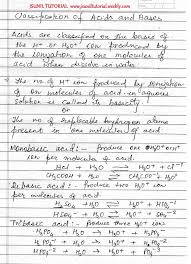 JSUNIL TUTORIAL www.jsuniltutorial.weebly.com
Classification of Acids and Bases
Acids are classified on the basis of
the H+ or H3O+ ion produced by
the ionization of one molecules of
acid when dissolve in water.
The no of H+ ion produced by ionization
of one molecules of acid in aqueous
Solution is called its basicity
or
The no of replicable hydrogen atoms
present in one molecule of acid
Monobasic acid :- produce one H3O+
ion per molecule of acid.
HCl + H2O → H3O+ + Cl-1
CH3COOH + H2O → CH3COO- + H3O+
Dibasic acid :- produce two H3O+ ion
per molecules of acid
H2SO4 + H2O → H3O+ + HSO4-1
HSO4- + H2O → H3O+ + SO4-2
Tribasic :- produce three H3O+ ion
H3PO4 + H2O → H3O+ + H2PO4-1
H2PO4-1 + H2O → H3O+ + HPO4-2
HPO4-2 + H2O → H3O+ + PO4-3